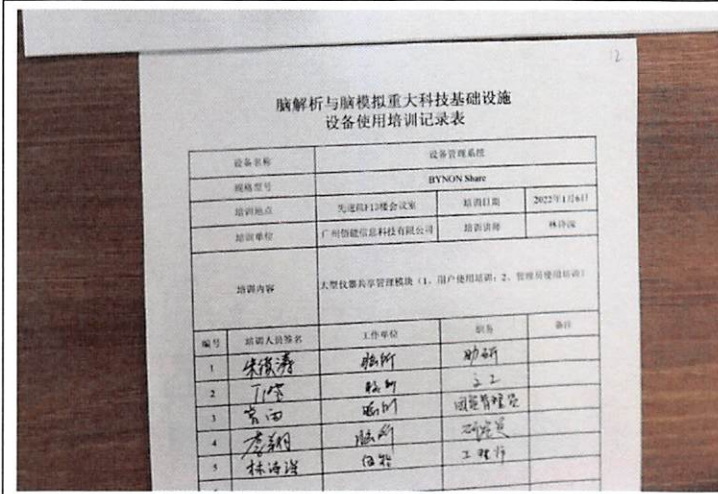 12
脑解析与脑模拟重大科技基础设施
设备使用培训记录表
设备名称 设备管理系统
规格型号 BYNON Share
培训地点 先进院F13楼会议室 培训日期 2022年1月6日
培训单位 广州佰能信息科技有限公司 培训讲师
培训内容 大型仪器共享管理模块（1、用户使用培训；2、管理员使用培训）
编号 培训人员签名 工作单位 职务 备注
1 脑所 助研
2
3 脑所
4 李翔 脑所
5 工程师